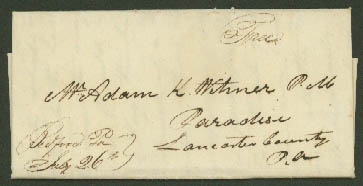 Free
Mr Adam K Witmer P.M
Paradise
Lancaster County
Pa
Bedford Pa
July 26th